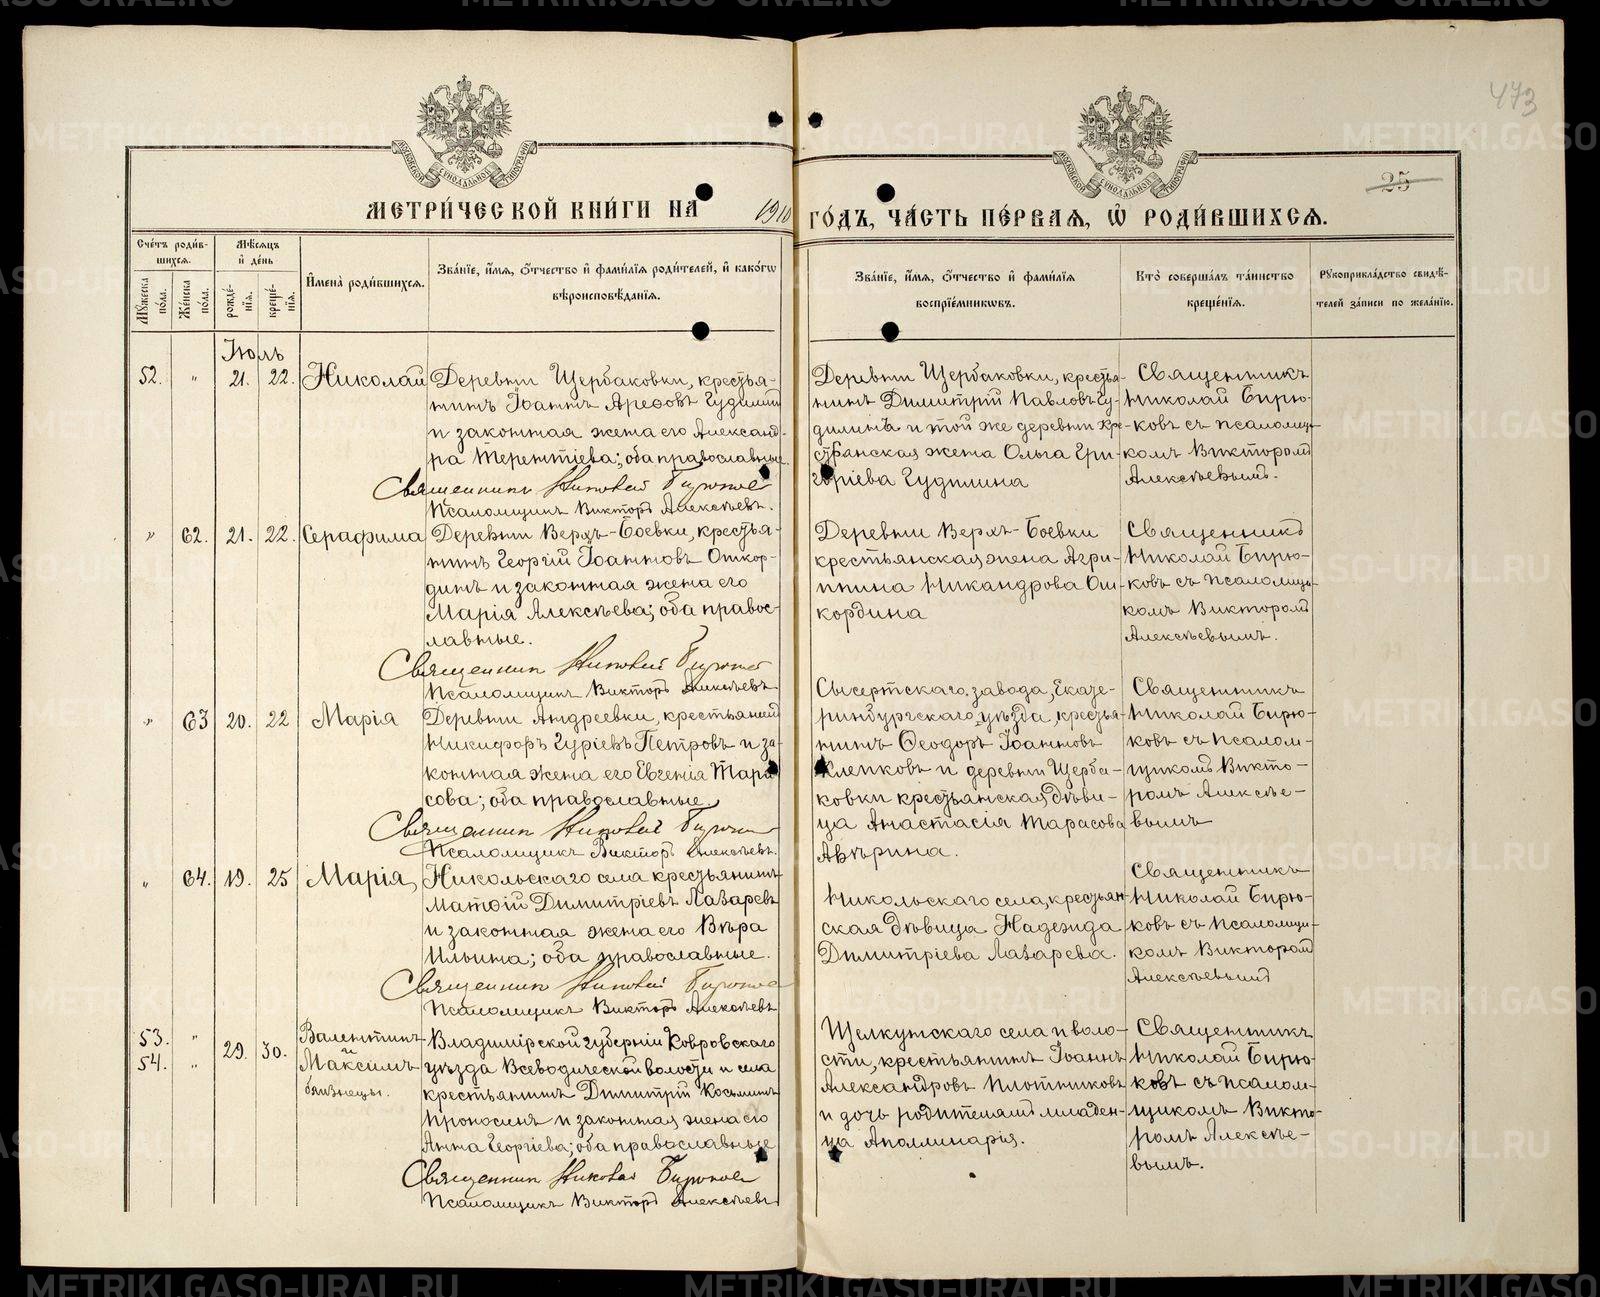 473
25
МЕТРИ́ЧЕСКОЙ КНИ́ГИ НА 1910 ГО́ДЪ, ЧА́СТЬ ПЕ́РВАЯ, Ѡ РОДИ́ВШИХСЯ.
Сче́тъ роди́вшихся.
Мѣ́сяцъ и де́нь
Имена̀ роди́вшихся.
Зва́нїе, и́мя, о́тчество и фами́лїя роди́телей, и како́гѡ
вѣроисповѣ́данїя.
Зва́нїе, и́мя, о́тчество и фами́лїя
воспрїе́мникѡвъ.
Кто̀ соверша́лъ та́инство
креще́нїя.
Рꙋкоприкла́дство свидѣ́-
телей за́писи по жела́нїю.
Мꙋ́жеска по́ла.
Же́нска по́ла.
рожде́нїя.
креще́нїя.
Іюль
52. " 21. 22. Николай
Деревни Щербаковки, крестья-
нинъ Іоаннъ Арефовъ Гудилин
и законная жена его Александ-
ра Терентіева; оба православные.
Священникъ Николай Бирюков
Псаломщикъ Викторъ Алексѣевъ.
Деревни Щербаковки, крестья-
нинъ Димитрій Павловъ Гу-
дилинъ и той же деревни кре-
стьянская жена Ольга Гри-
горіева Гудилина
Священникъ
Николай Бирю-
ковъ съ псаломщи-
комъ Викторомъ
Алексѣевымъ.
" 62. 21. 22. Серафима
Деревни Верхъ-Боевки, крестья-
нинъ Георгій Іоанновъ Ошкор-
динъ и законная жена его
Марія Алексѣева; оба правос-
лавные.
Священникъ Николай Бирюков
Псаломщикъ Викторъ Алексѣевъ
Деревни Верхъ-Боевки
крестьянская жена Агри-
пина Никандрова Ош-
кордина
Священникъ
Николай Бирю-
ковъ съ псаломщи-
комъ Викторомъ
Алексѣевымъ.
" 63 20. 22 Марія
Деревни Андреевки, крестьянин
Никифоръ Гуріевъ Петровъ и за-
конная жена его Евгенія Тара
сова; оба православные.
Священникъ Николай Бирюков
Псаломщикъ Викторъ Алексѣевъ.
Сысертскаго завода, Екате-
ринбургскаго уѣзда крестья-
нинъ Ѳеодоръ Іоанновъ
Клепковъ и деревни Щерба-
ковки крестьянская дѣви-
ца Анастасія Тарасова
Авѣрина.
Священникъ
Николай Бирю-
ковъ съ псалом-
щикомъ Викто-
ромъ Алексѣе-
вымъ
" 64. 19. 25 Марія,
Никольскаго села крестьянинъ
Матѳій Димитріевъ Лазаревъ
и законная жена его Вѣра
Ильина; оба православные.
Священникъ Николай Бирюков
Псаломщикъ Викторъ Алексѣевъ
Никольскаго села, крестьян-
ская дѣвица Надежда
Димитріева Лазарева.
Священникъ
Николай Бирю-
ковъ съ псаломщи-
комъ Викторомъ
Алексѣевымъ
53. " 29. 30. Валентинъ
54. " и Максимъ
близнецы.
Владимірской губерніи Ковровскаго
уѣзда Всеводической волости и села
крестьянинъ Димитрій Косьминъ
и законная жена его
Анна Георгіева; оба православные
Священникъ Николай Бирюков
Псаломщикъ Викторъ Алексѣевъ
Щелкунскаго села и воло-
сти, крестьянинъ Іоаннъ
Александровъ Плотниковъ
и дочь родителямъ младен-
ца Аполлинарія.
Священникъ
Николай Бирю
ковъ съ псалом-
щикомъ Викто-
ромъ Алексѣе-
вымъ.
METRIKI.GASO-URAL.RU